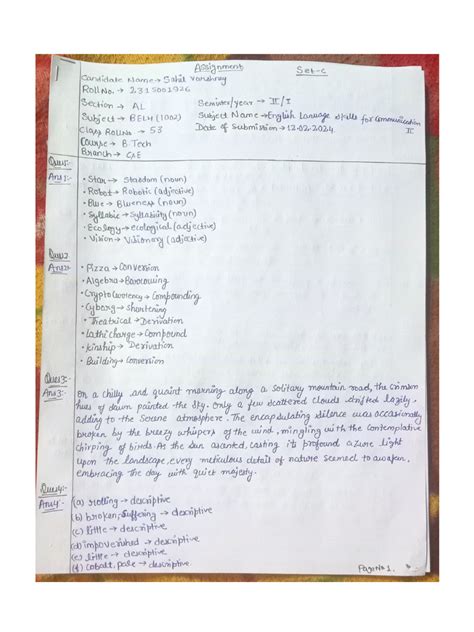 Assignment
Set-C
Candidate Name → Sahil Varshney
Roll No. → 2315001926
Section → AL
Semister/year → II/I
Subject → BELH (1002)
Subject Name → English Lanuage skills for Communication II
Class RollNo → 53
Date of Submission → 12-02-2024
Course → B.Tech
Branch → CSE
Ques1:-
Ans1:-
• Star → Stardom (noun)
• Robot → Robotic (adjective)
• Blue → Blueness (noun)
• Syllabic → Syllabivity (noun)
• Ecology → ecological (adjective)
• Vision → Visionary (adjective)
Ques2
Ans2:-
• Pizza → Conversion
• Algebra → Borrowing
• Cryptocurrency → Compounding
• Cyborg → shortening
• Theatrical → Derivation
• Lathicharge → Compound
• kinship → Derivation
• Building → Conversion
Ques3:-
Ans3:-
On a chilly and quaint morning along a solitary mountain road, the crimson
hues of dawn painted the sky. Only a few scattered clouds drifted lazily,
adding to the serene atmosphere. The encapsulating silence was occasionally
broken by the breezy whispers of the wind, mingling with the contemplative
chirping of birds. As the sun ascented, casting its profound azure light
upon the landscape, every meticulous detail of nature seemed to awaken,
embracing the day with quiet majesty.
Ques4:-
Ans4:-
(a) rolling → descriptive
(b) broken, suffering → descriptive
(c) little → descriptive
(d) impoverished → descriptive
(e) little → descriptive
(f) cobalt, pale → descriptive
Page No 1.